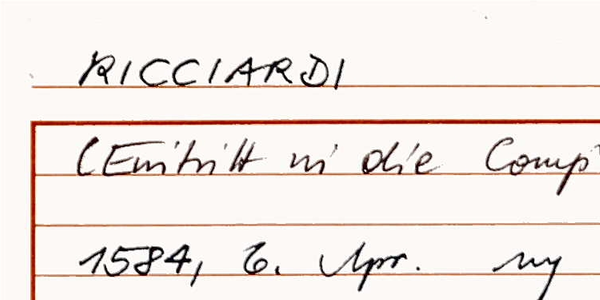 RICCIARDI
(Eintritt in die Comp
1584, 6. Apr.